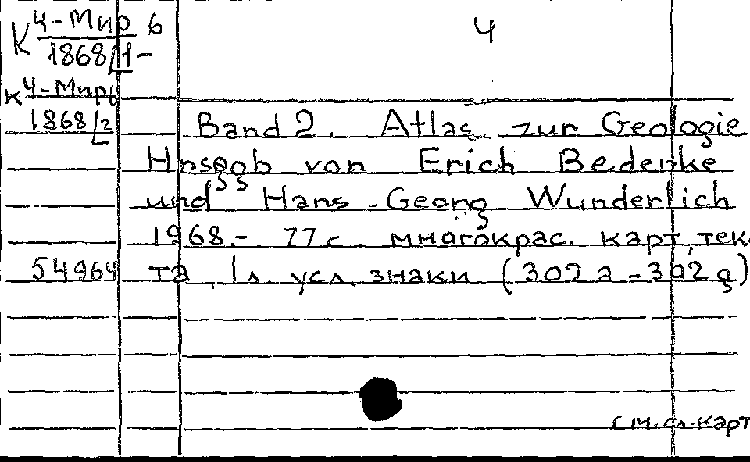 К Ч-Мир 6 Ч
1868/1-
К Ч-Мир
1868/2 Band 2. Atlas zur Geologie
Hrsgob von Erich Bederke
und Hans-Georg Wunderlich
1968.- 77 с. многокрас. карт, тек-
54964 та, 1 л. усл. знаки (302 а - 302 g)
см. сл. карт